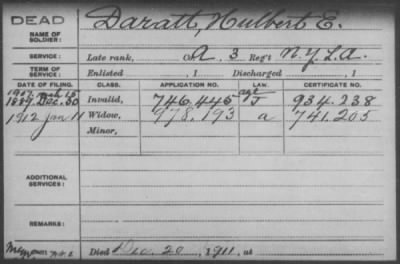 DEAD
Daratt, Hulbert E.
NAME OF SOLDIER:
SERVICE: Late rank, Co. A, 3 Reg't N.Y.L.A.
TERM OF SERVICE: Enlisted , 1 Discharged , 1
DATE OF FILING. CLASS. APPLICATION NO. LAW. CERTIFICATE NO.
1907 15 agt
1889 Dec. 30 Invalid, 746.445 J 934.238
1912 Jan 11 Widow, 978.193 a 741.205
Minor,
ADDITIONAL SERVICES:
REMARKS:
Died Dec. 20, 1911, at